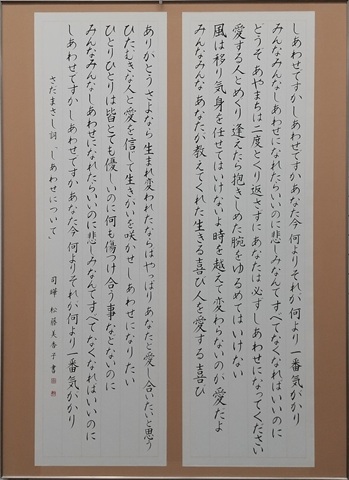 しあわせですかしあわせですかあなた今何よりそれが何より一番気がかり
みんなみんなしあわせになれたらいいのに悲しみなんてすべてなくなればいいのに
どうぞあやまちは二度とくり返さずにあなたは必ずしあわせになってください
愛する人とめぐり逢えたら抱きしめた腕をゆるめてはいけない
風は移り気身を任せてはいけないよ時を越えて変わらないのが愛だよ
みんなみんなあなたが教えてくれた生きる喜び人を愛する喜び
ありがとうさよなら生まれ変われたならばやっぱりあなたと愛し合いたいと思う
ひたむきな人と愛を信じて生きがいを咲かせしあわせになりたい
ひとりひとりは皆とても優しいのに何も傷つけ合う事などないのに
みんなみんなしあわせになれたらいいのに悲しみなんてすべてなくなればいいのに
しあわせですかしあわせですかあなた今何よりそれが何より一番気がかり
さだまさし詞「しあわせについて」
司暉 松藤美香子書